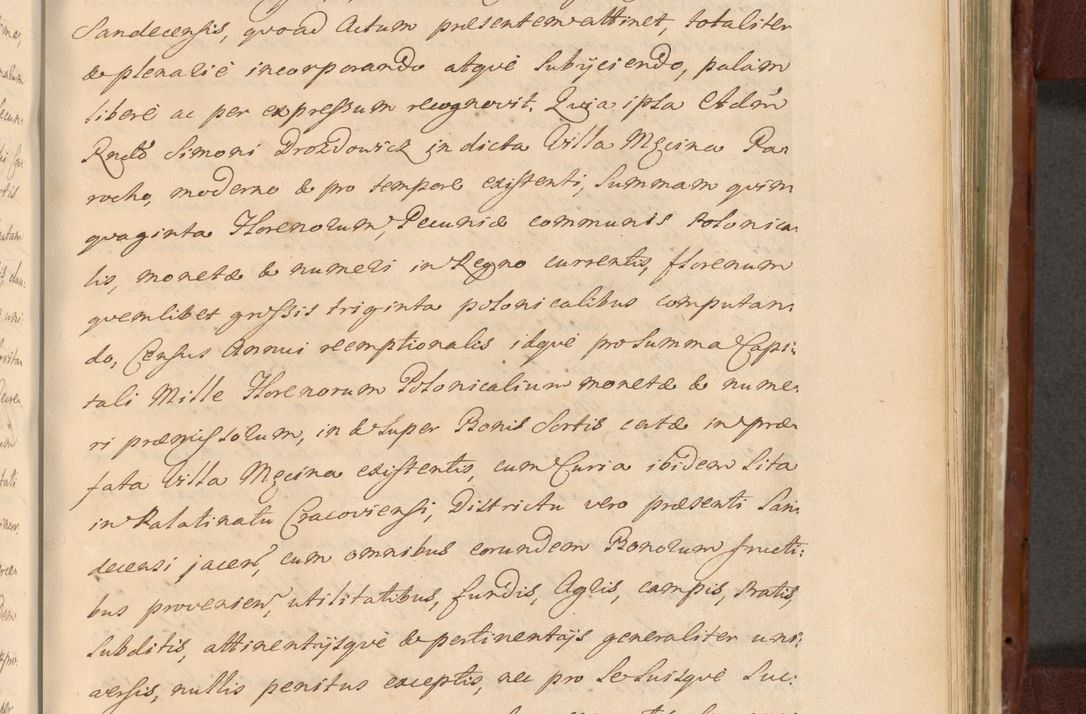 Sandecensis, quoad Actum præsentem attinet, totaliter
& plenariè incorporando atque subijciendo, palàm
liberè ac per expressum recognovit. Quia ipsa Adm̃
Rndõ Simoni Drozdowicz in dicta Villa Męcina Pa-
rocho, moderno & pro tempore existenti, Summam quin-
quaginta Florenorum, Pecuniæ communis Polonica-
lis, monetæ & numeri in Regno currentis, florenum
quemlibet grossis triginta polonicalibus computan-
do, Census Annui reemptionalis idquè pro Summa Capi-
tali Mille Florenorum Polonicalium monetæ & nume-
ri præmissorum, in & super Bonis Sortis certæ in præ-
fata Villa Męcina existentis, cum Curia ibidem sita
in Palatinatu Cracoviensi, Districtu vero præsenti San-
decensi jacen̄, cum omnibus eorundem Bonorum fructi-
bus provenien̄, utilitatibus, fundis, Agris, campis, Pratis,
Subditis, attinentijsquè & pertinentijs generaliter uni-
versis, nullis penitus exceptis, nec pro se suisquè Suc-